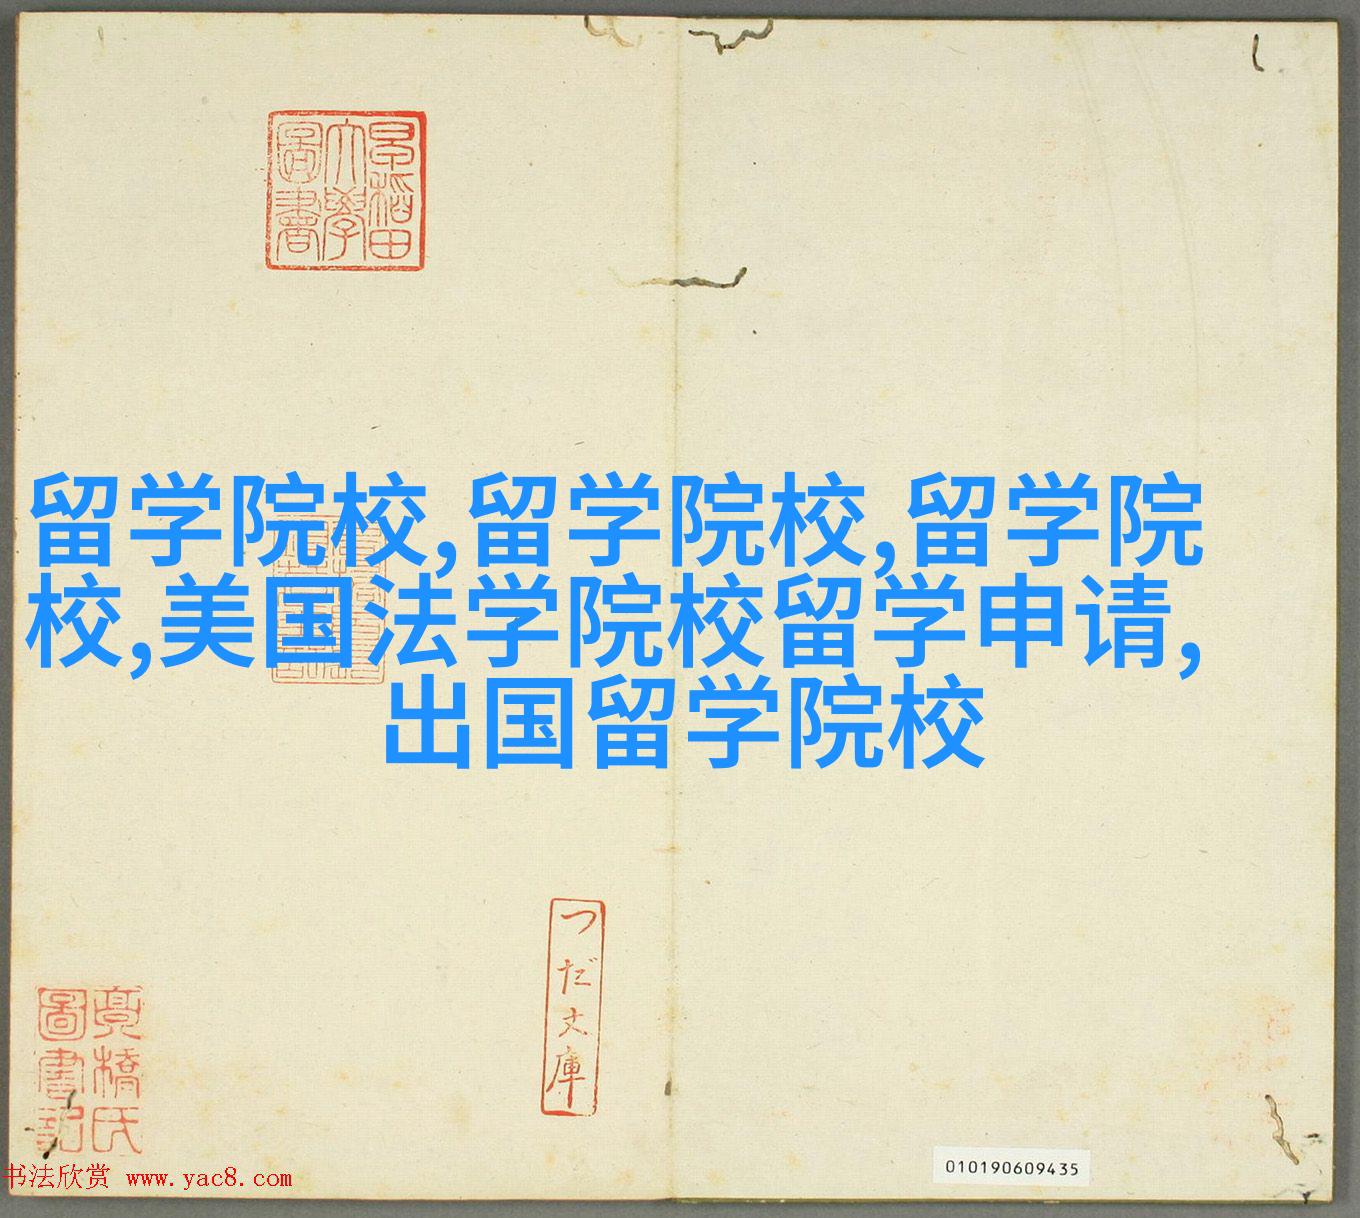 早稻田
大學
圖書
留学院校,留学院校,留学院
校,美国法学院校留学申请,
出国留学院校
つだ文庫
圖書記
書法欣赏 www.yac8.com
010190609435